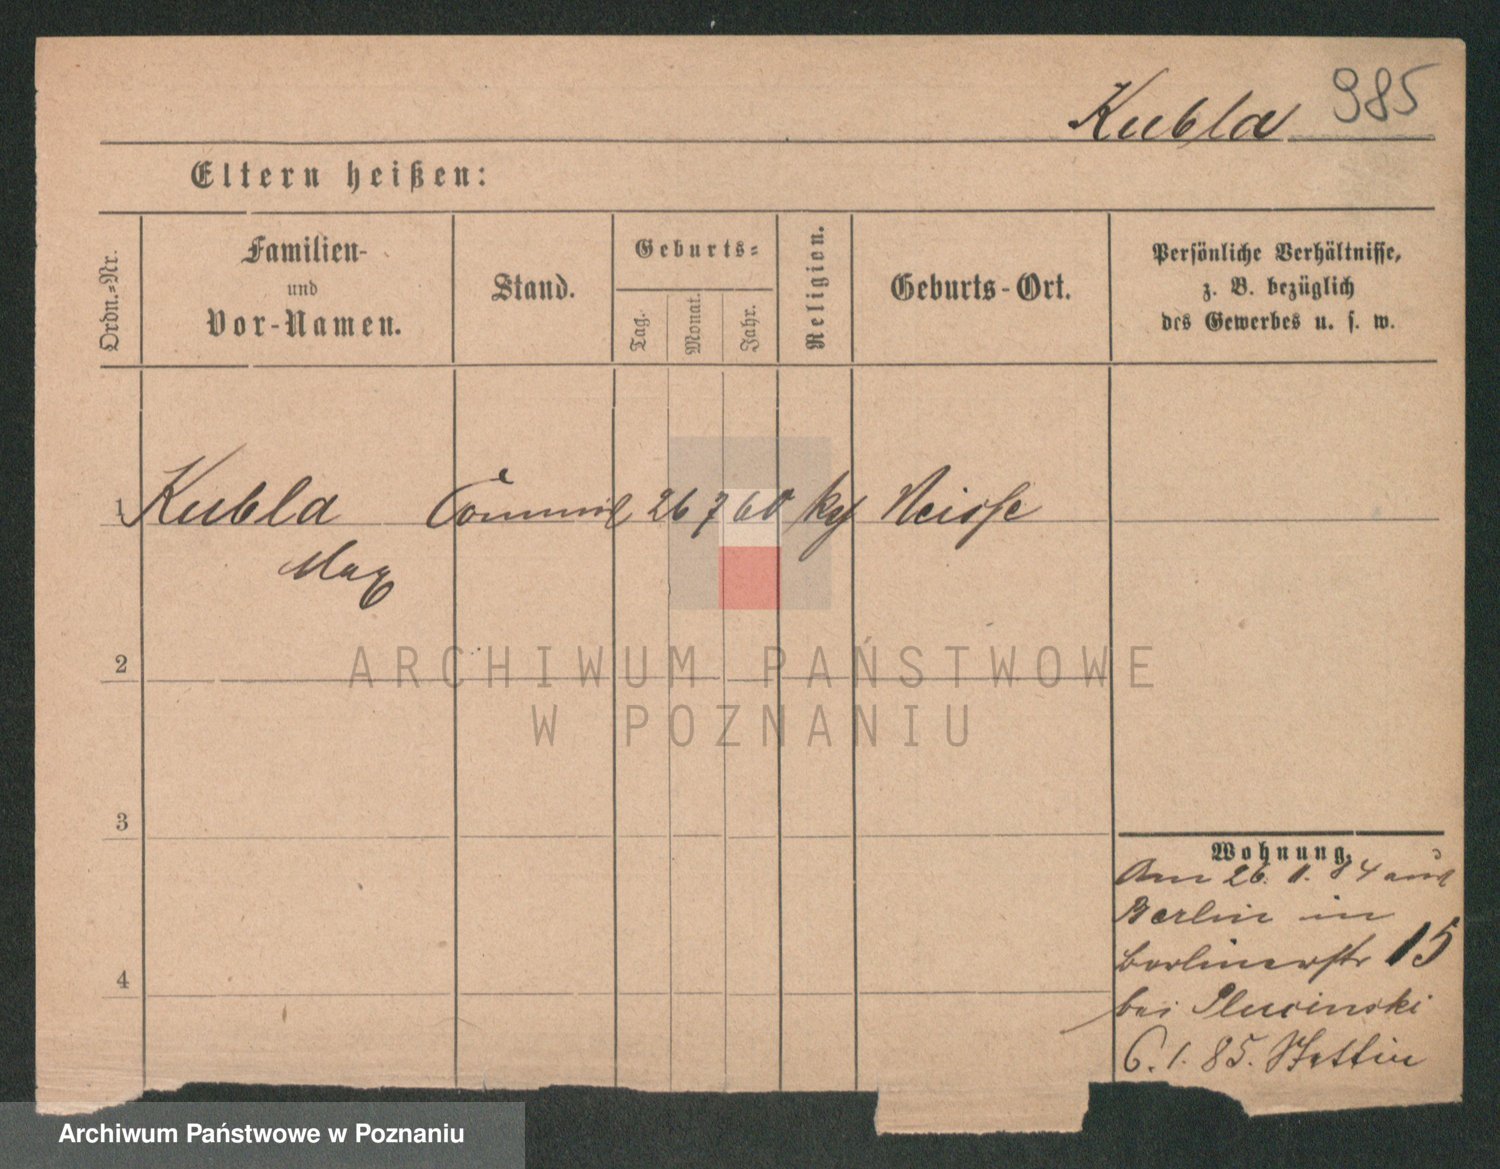 Kubla 985
Eltern heißen:
Ordn.-Nr.
Familien-
und
Vor-Namen.
Stand.
Geburts-
Tag.
Monat.
Jahr.
Religion.
Geburts-Ort.
Persönliche Verhältnisse,
z. B. bezüglich
des Gewerbes u. s. w.
1 Kubla Commis 26 7 60 Neisse
Max
2
ARCHIWUM PAŃSTWOWE
W POZNANIU
3
Wohnung.
Am 26. 1. 84 aus
Berlin in
Berlinerstr 15
4
bei Plucinski
6. 1. 85. Stettin
Archiwum Państwowe w Poznaniu